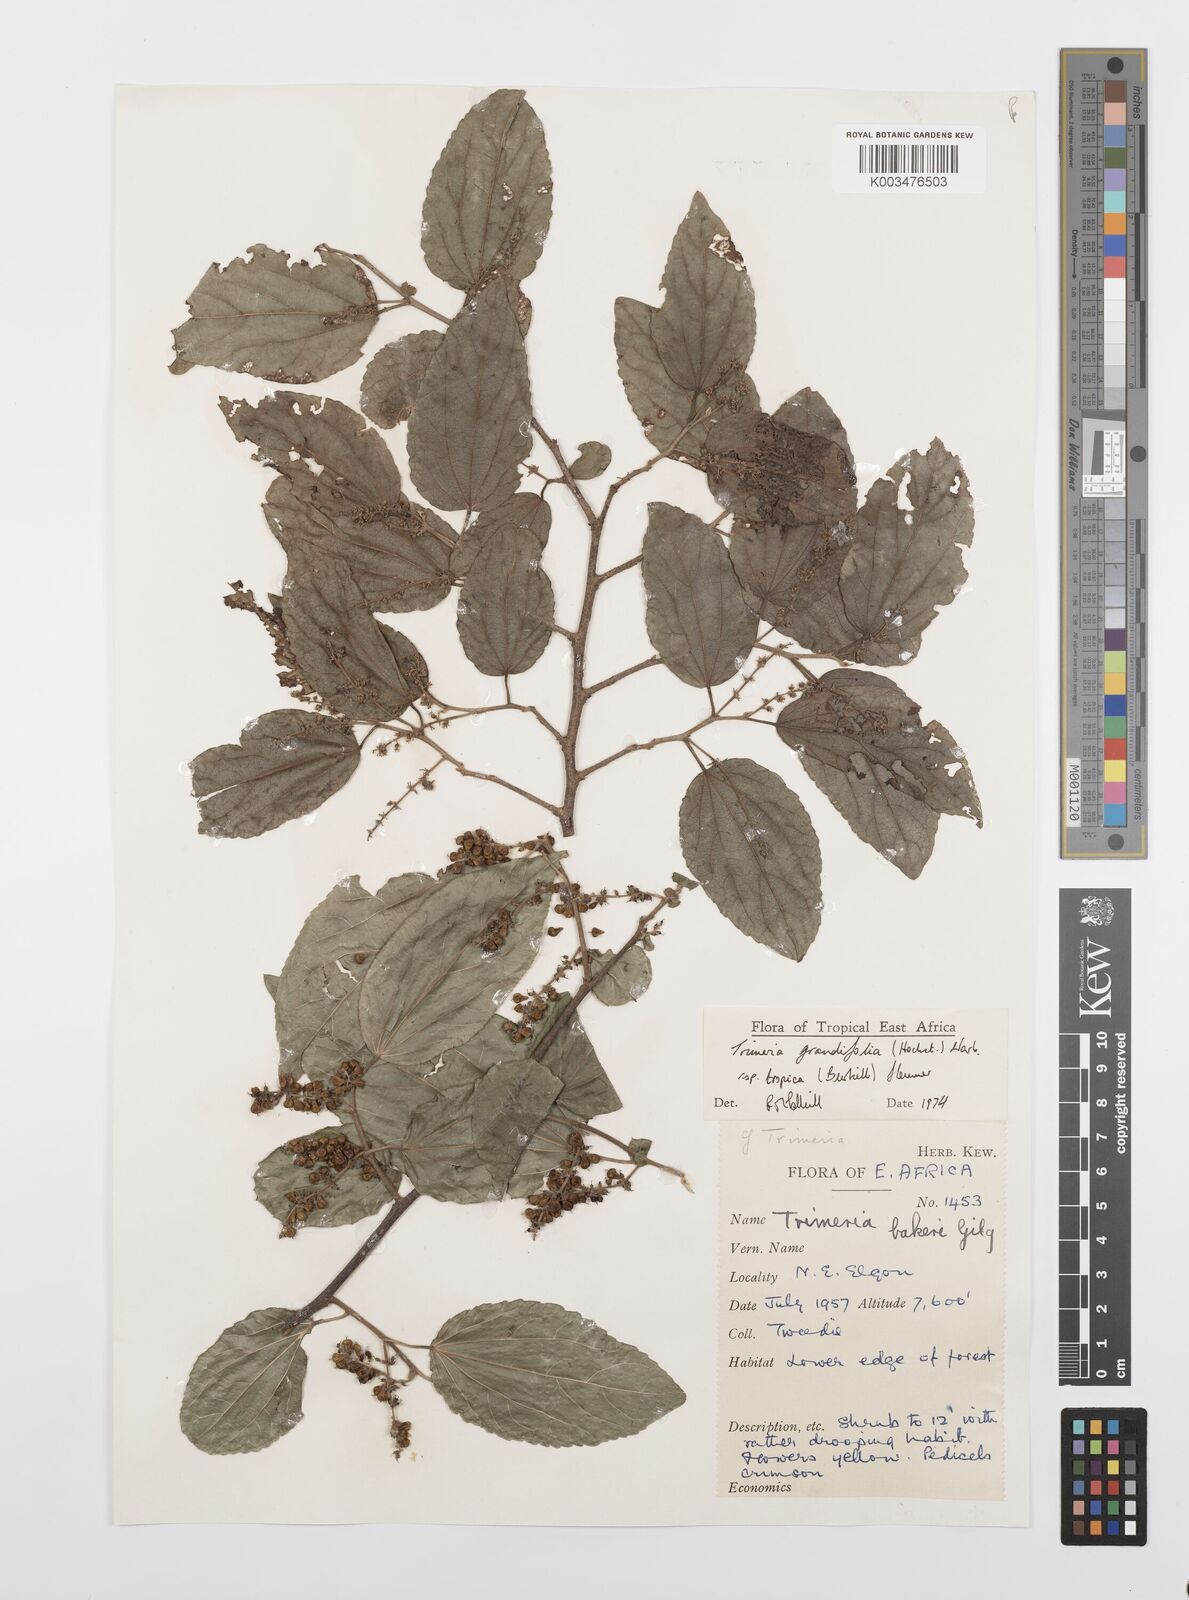 ROYAL BOTANIC GARDENS KEW
K003476503
Flora of Tropical East Africa
Trimeria grandifolia (Hochst.) Warb.
ssp. tropica (Burkill) Sleumer
Det. Date 1974
Trimeria
HERB. KEW.
FLORA OF E. AFRICA
No. 1453
Name Trimeria bakeri Gilg
Vern. Name
Locality N. E. Elgon
Date July 1957 Altitude 7,600'
Coll. Tweedie
Habitat Lower edge of forest
Description, etc. Shrub to 12' with
rather drooping habit.
Flowers yellow. Pedicels
crimson
Economics
inches
Density
Don Williams
M001120
centimeters
Royal Botanic Gardens
Kew
0 1 2 3 4 5 6 7 8 9 10
cm
copyright reserved